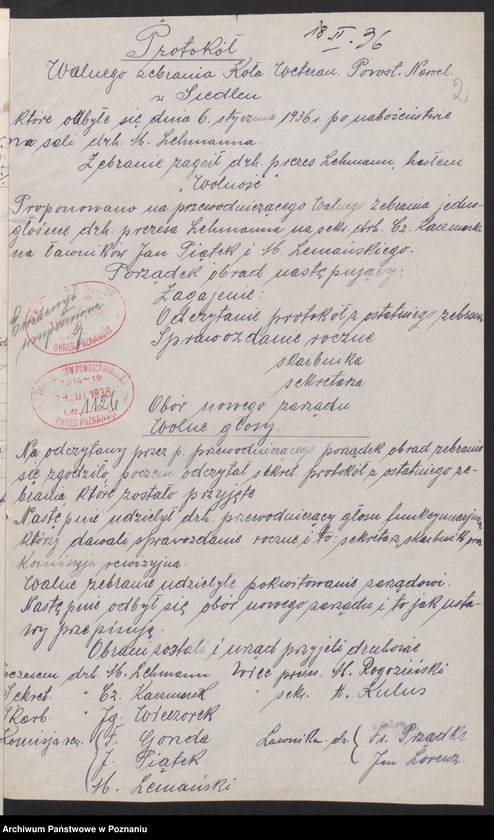 18 II. 36
Protokół
2
Walnego zebrania Koła Weteran. Powst. Narod.
w Siedlcu
które odbyło się dnia 6. stycznia 1936 r. po nabożeństwie
na sali drh. M. Lehmanna.
Zebranie zagaił drh. prezes Lehmann, hasłem
"Wolność"
Proponowano na przewodniczącego Walnego zebrania jedno-
głośnie drh. prezesa Lehmanna na sekr. drh. Cz. Kaczmarek
na ławników Jan Piątek i M. Lemańskiego.
Porządek obrad następujący:
Zagajenie:
Odczytanie protokół z ostatniego zebran.
Sprawozdanie roczne
skarbnika
sekretarza
Obór nowego zarządu
Wolne głosy.
OKRĘG POZNAŃSKI
1914-19
L.dz. 1121
OKRĘG POZNAŃSKI
Na odczytany przez p. przewodniczącego porządek obrad zebranie
się zgodziło, poczem odczytał sekret. protokół z ostatniego ze-
brania które zostało przyjęte
Następnie udzielył drh. przewodniczący głosu
który dawali sprawozdanie roczne i to: sekretarz, skarbnik,
Komisyja rewizyjna.
Walne zebranie udzielyło pokwitowanie zarządowi.
Następnie odbył się obór nowego zarządu i to jak usta-
wy przepisują.
Obrani zostali i urząd przyjeli druhowie
prezesem drh. M. Lehmann Wice prezes. M. Rogoziński
Sekret. " Cz. Kaczmarek " sekr. A. Kulus
Skarb. " Ig. Wieczorek
Komisja rez. F. Gonda Ławnika. dr. Fr. Prządka
J. Piątek Jan Lorenz.
M. Lemański
Archiwum Państwowe w Poznaniu